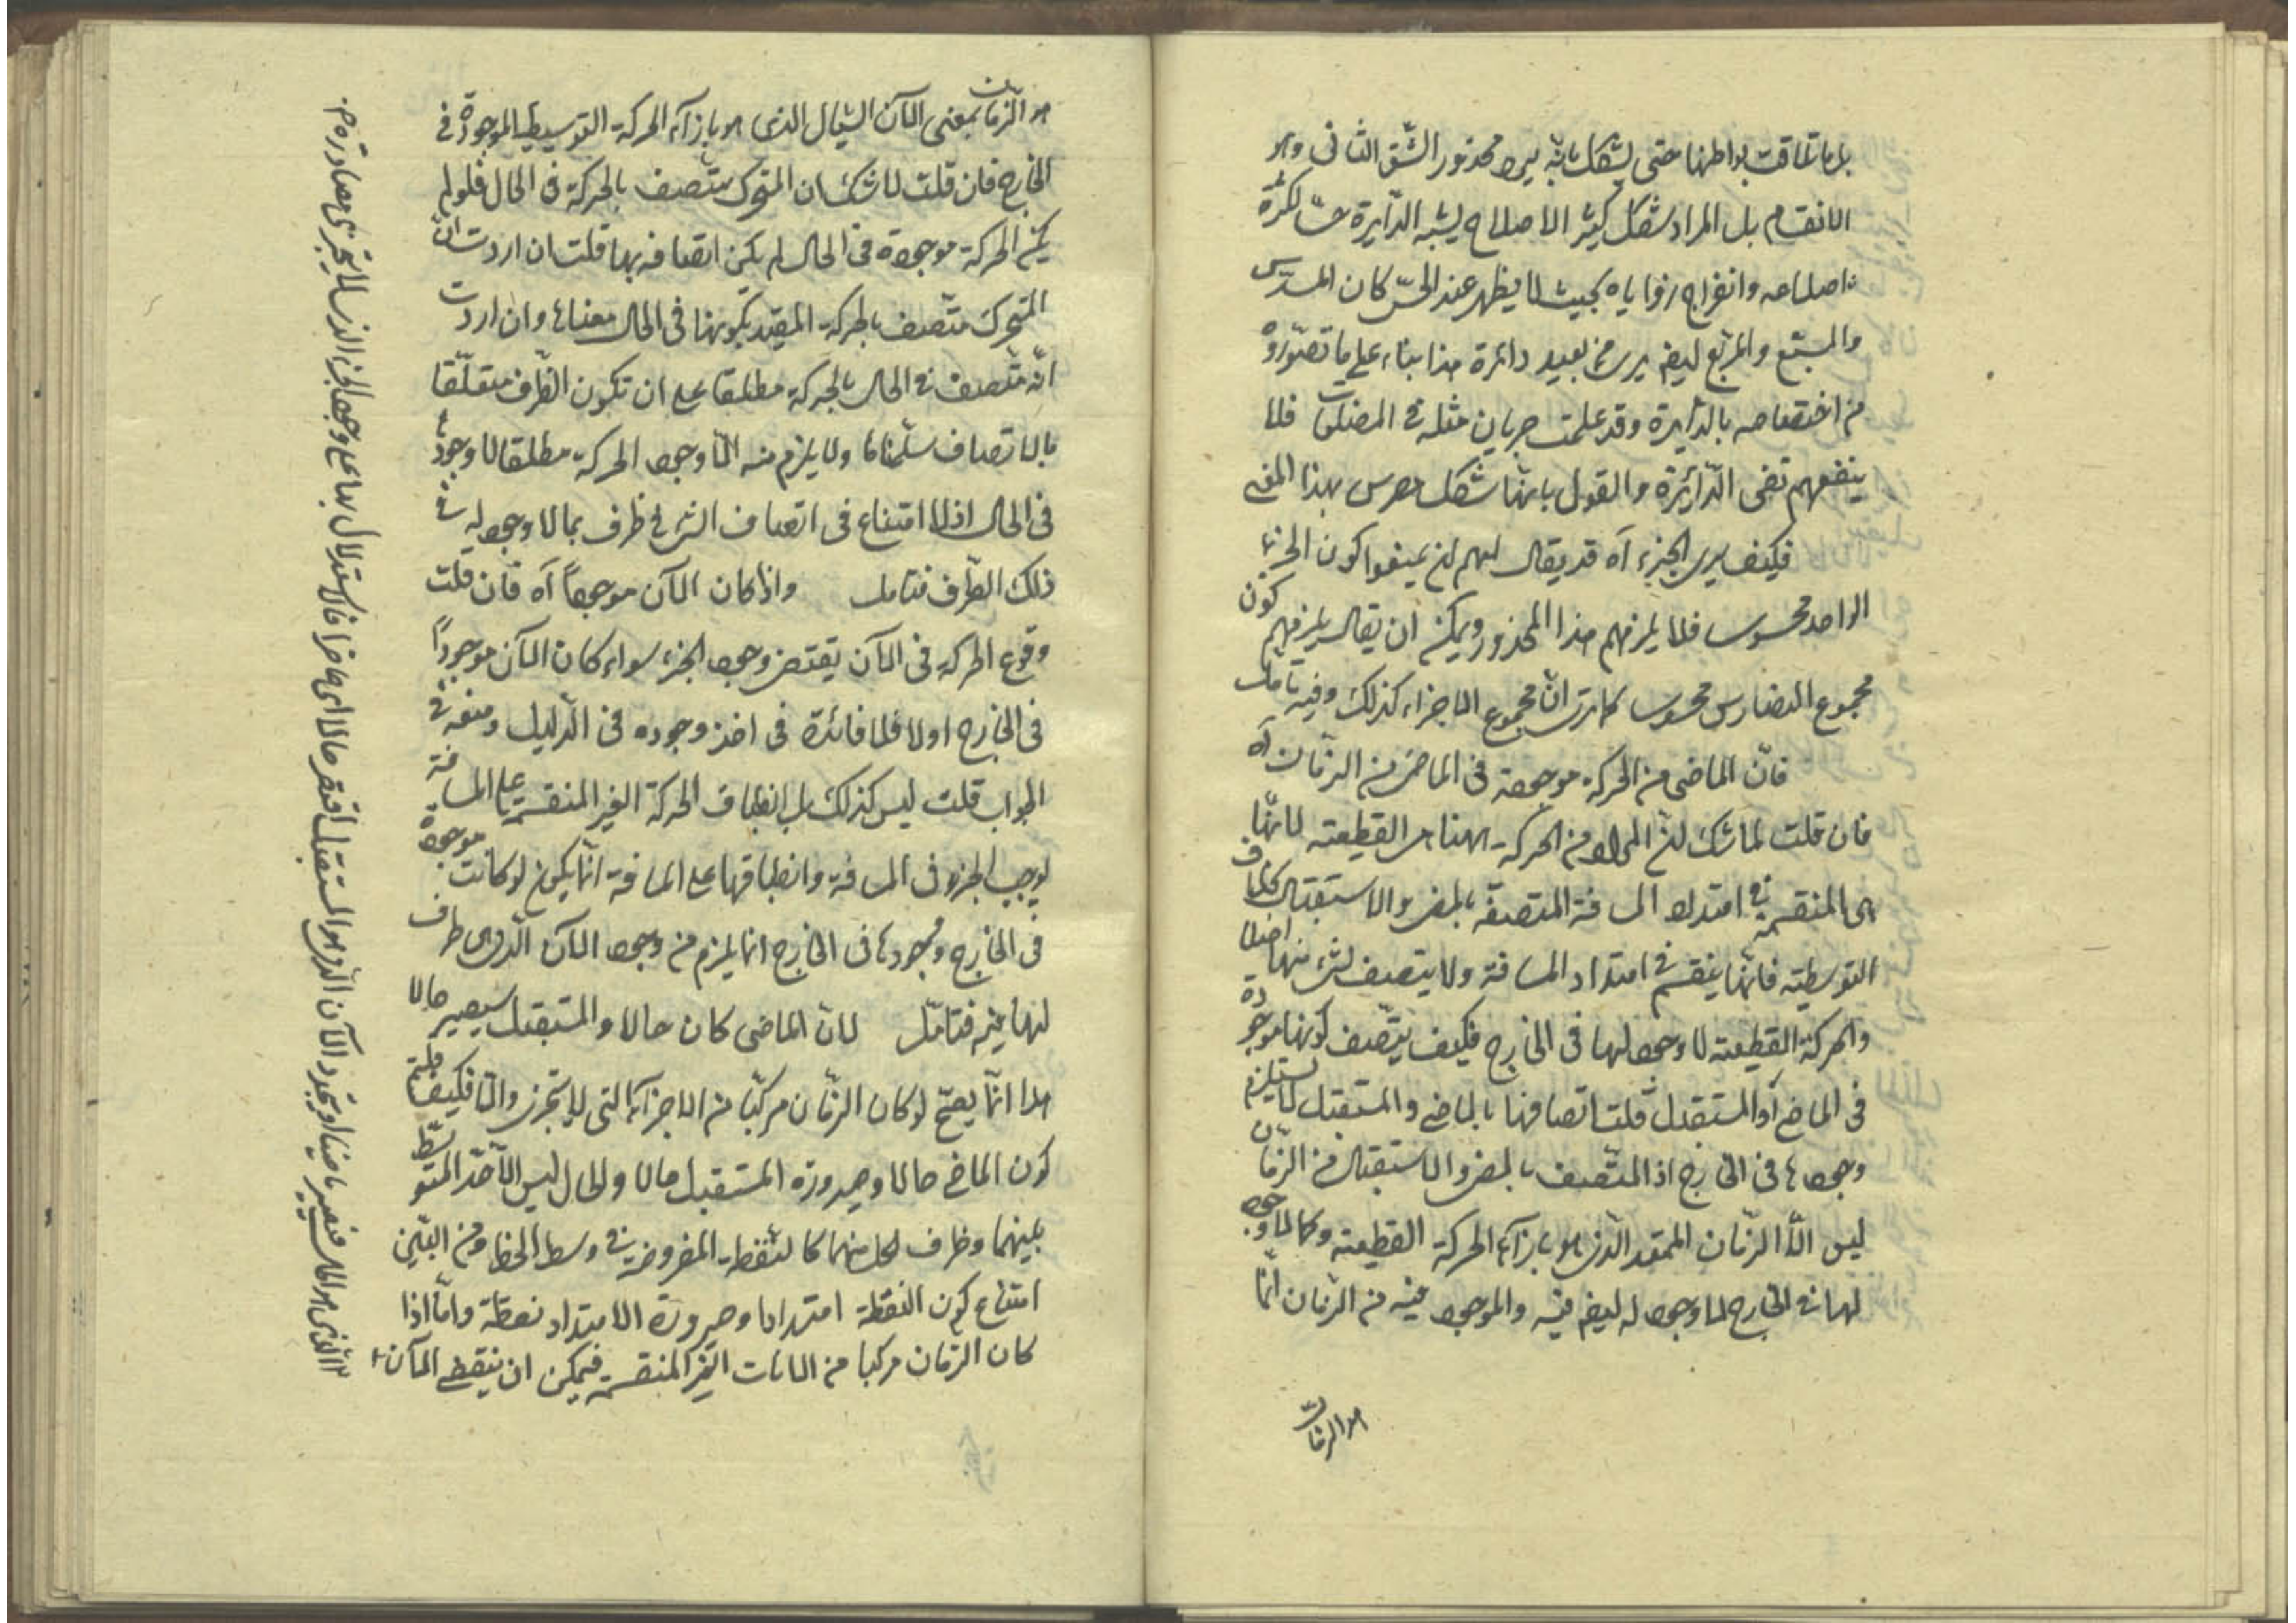 بل ما تلاقت بواطنها حتى يشكل بانه يرد محذور الشق الثانى وهو
الانقسام بل المراد شكل كثير الاضلاع يشبه الدايرة حسا لكثرة
اضلاعه وانفراج زواياه بحيث لا يظهر عند الحس كان المسدس
والمسبع والمربع ايضا يرى من بعيد دائرة هذا بناء على ما تصوروه
من اختصاصه بالدايرة وقد علمت جريان مثله فى المضلعات فلا
ينفعهم نفى الدائرة والقول بانها شكل مضرس بهذا المعنى
فكيف يرى الجزء آه قد يقال لهم ان يمنعوا كون الجزء
الواحد محسوسا فلا يلزمهم هذا المحذور ويمكن ان يقال يلزمهم كون
مجموع التضاريس محسوسا كما ترى ان مجموع الاجزاء كذلك وفيه تامل
فان الماضى من الحركة موجودة فى الماضى من الزمان آه
فان قلت لا شك ان المراد من الحركة ههنا هى القطعية لانها
هى المنقسمة فى امتداد المسافة المتصفة بالمضى والاستقبال بخلاف
التوسطية فانها ينقسم فى امتداد المسافة ولا يتصف بشئ منها اصلا
والحركة القطعية لا وجود لها فى الخارج فكيف يتصف كونها موجودة
فى الماضى او المستقبل قلت اتصافها بالماضى والمستقبل لا يستلزم
وجودها فى الخارج اذ المتصف بالمضى والاستقبال من الزمان
ليس الا الزمان الممتد الذى هو بازآء الحركة القطعية وكما لا وجود
لها فى الخارج لا وجود له ايضا فيه والموجود فيه من الزمان انما
هو الزمان
هو الزمان بمعنى الآن السيال الذى هو بازآء الحركة التوسطية الموجودة فى
الخارج فان قلت لا شك ان المتحرك متصف بالحركة فى الحال فلو لم
يكن الحركة موجودة فى الحال لم يكن اتصافه بها قلت ان اردت ان
المتحرك متصف بالحركة المقيد بكونها فى الحال منعناه وان اردت
انه متصف فى الحال بالحركة مطلقا على ان تكون الظرف متعلقا
بالاتصاف سلمناه ولا يلزم منه الا وجود الحركة مطلقا لا وجودها
فى الحال اذ لا امتناع فى اتصاف الشئ فى ظرف بما لا وجود له فى
ذلك الظرف فتامل واذا كان الآن موجودا آه فان قلت
وقوع الحركة فى الآن يقتضى وجود الجزء سواء كان الآن موجودا
فى الخارج اولا فلا فائدة فى اخذ وجوده فى الدليل ومنعه فى
الجواب قلت ليس كذلك بل انطباق الحركة الغير المنقسمة على المسافة
يوجب الجزء فى المسافة وانطباقها على المسافة انما يكون لو كانت موجودة
فى الخارج ووجودها فى الخارج انما يلزم من وجود الآن الذى هو ظرف
لها فيه فتامل لان الماضى كان حالا والمستقبل سيصير حالا
هذا انما يصح لو كان الزمان مركبا من الاجزآء التى لا تتجزى والا فكيف قلتم
كون الماضى حالا وصيرورة المستقبل حالا والحال ليس الا الحد المتوسط
بينهما وظرف لكل منهما كالنقطة المفروضة فى وسط الخط ومن البين
امتناع كون النقطة امتدادا وصيرورة الامتداد نقطة واما اذا
كان الزمان مركبا من الانات الغير المنقسمة فيمكن ان ينقضى الآن
الذى هو الحال فيصير ماضيا ويتجدد الآن الذى هو المستقبل فيصير حالا اى حاضرا فالاستدلال بها على وجود الجزء الذى لا يتجزى مصادرة